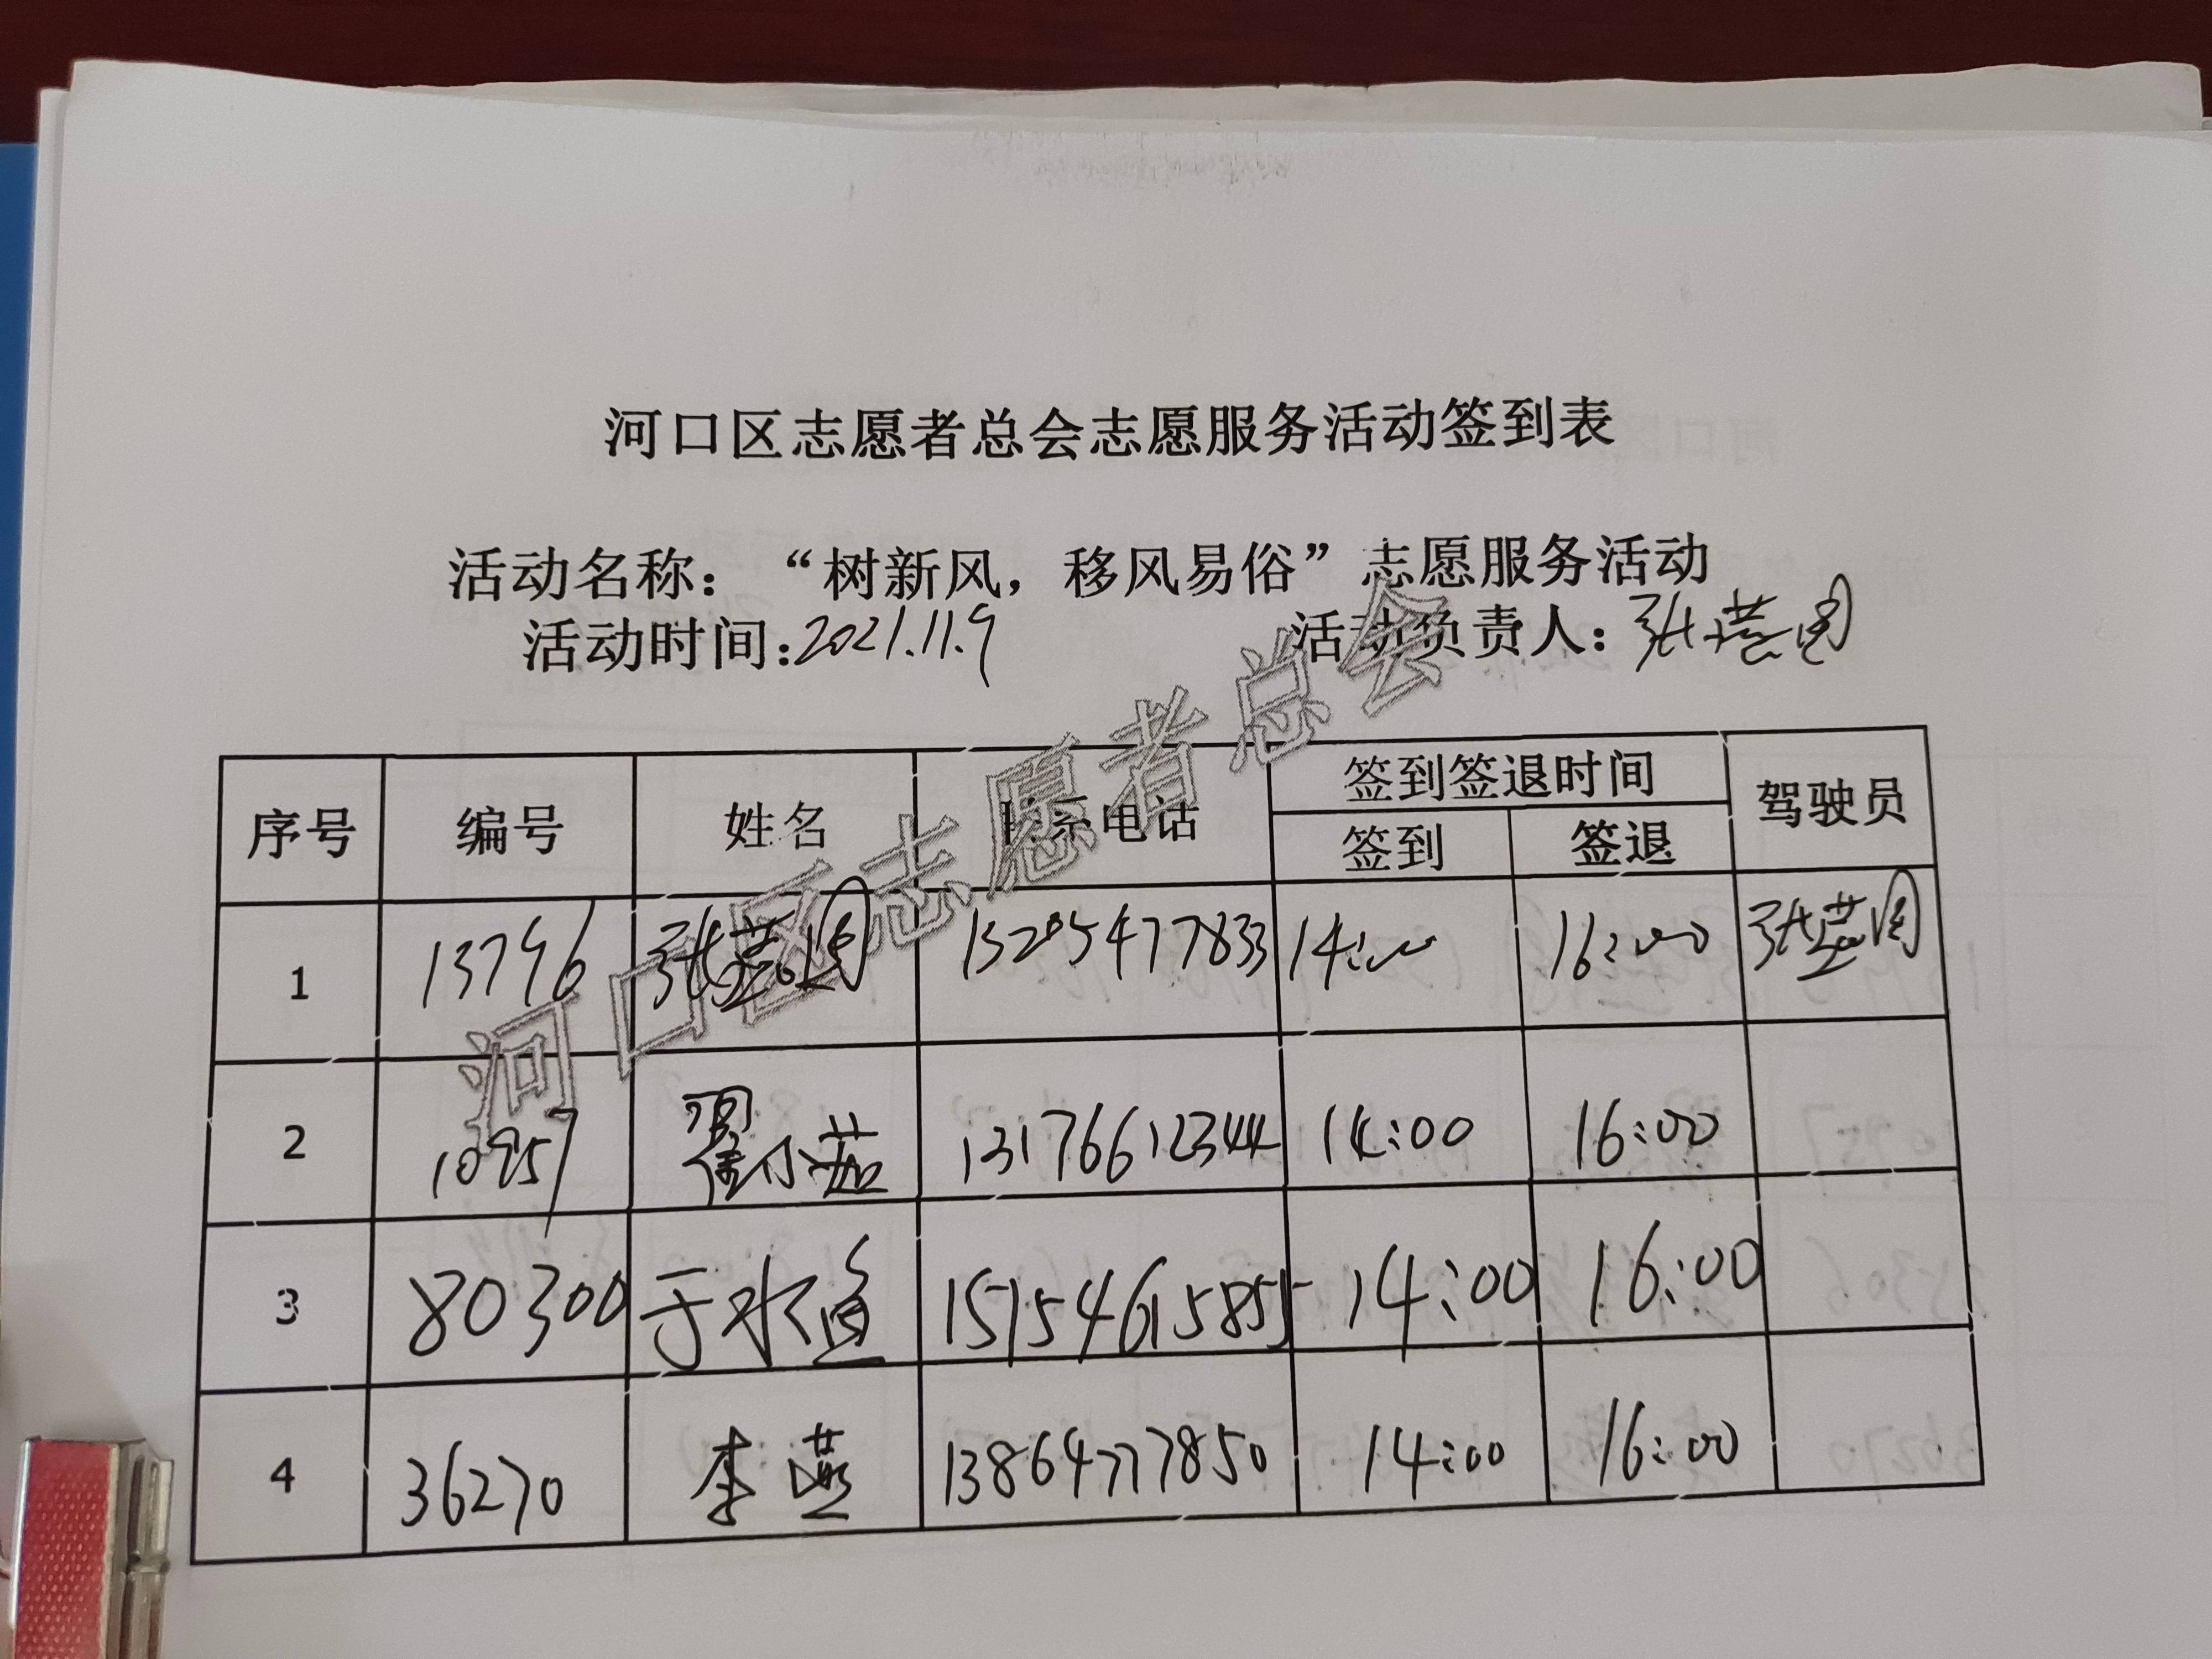 河口区志愿者总会志愿服务活动签到表
活动名称：“树新风，移风易俗”志愿服务活动
活动时间：2021.11.9 活动负责人：张
河口区志愿者总会
序号 编号 姓名 联系电话 签到签退时间 驾驶员
签到 签退
1 13796 张 13205477833 14:00 16:00 张
2 10957 翟小茹 13176612344 14:00 16:00
3 80300 于水 15154615855 14:00 16:00
4 36270 李燕 13864777850 14:00 16:00